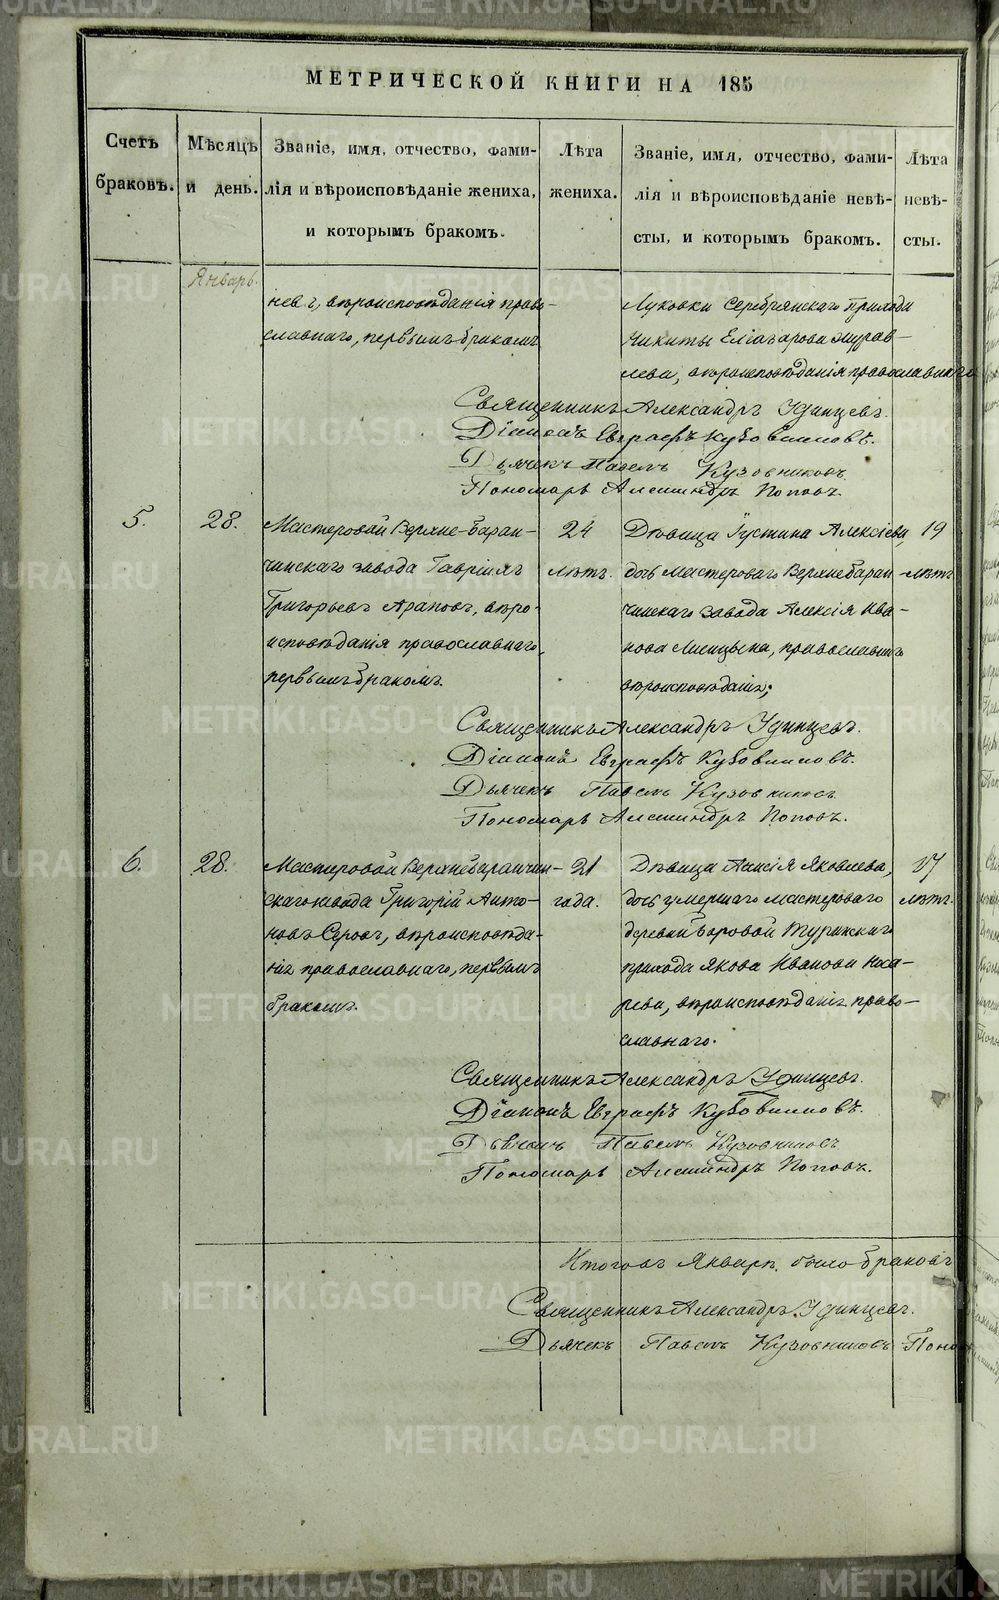 МЕТРИЧЕСКОЙ КНИГИ НА 185
Счетъ браковъ.
Мѣсяцъ и день.
Званіе, имя, отчество, фами-
лія и вѣроисповѣданіе жениха,
и которымъ бракомъ.
Лѣта жениха.
Званіе, имя, отчество, фами-
лія и вѣроисповѣданіе невѣ-
сты, и которымъ бракомъ.
Лѣта
невѣ-
сты.
Январь.
невъ, вѣроисповѣданія право-
славнаго, первымъ бракомъ
Луковки Серебрянскаго Прихода
Никиты Еліазарова Журав-
лева, вѣроисповѣданія православнаго
Священникъ Александръ Удинцевъ.
Діаконъ Евграфъ Кузовниковъ.
Дьячекъ Павелъ Кузовниковъ
Пономарь Александръ Поповъ.
5.
28.
Мастеровой Верхне-Баран-
чинскаго завода Гавріилъ
Григорьевъ Араповъ, вѣро-
исповѣданія православнаго,
первымъ бракомъ.
24
лѣтъ.
Дѣвица Іустина Алексіева,
дочь Мастероваго Верхнебаран-
чинскаго завода Алексія Ива-
нова Лисицына, православнаго
вѣроисповѣданія;
19
лѣтъ
Священникъ Александръ Удинцевъ.
Діаконъ Евграфъ Кузовниковъ.
Дьячекъ Павелъ Кузовниковъ
Пономарь Александръ Поповъ.
6.
28.
Мастеровой Верхнебаранчин-
скаго завода Григорій Анто-
новъ Серовъ, вѣроисповѣда-
нія православнаго, первымъ
бракомъ.
21
года.
Дѣвица Яковлева,
дочь умершаго мастероваго
деревни Боровой Туринскаго
прихода Якова ИвановаНоса-
рева, вѣроисповѣданія право-
славнаго.
17
лѣтъ.
Священникъ Александръ Удинцевъ.
Діаконъ Евграфъ Кузовниковъ.
Дьячекъ Павелъ Кузовниковъ
Пономарь Александръ Поповъ.
Итого въ Январѣ было браковъ
Священникъ Александръ Удинцевъ.
Дьячекъ Павелъ Кузовниковъ Поно
METRIKI.GASO-URAL.RU